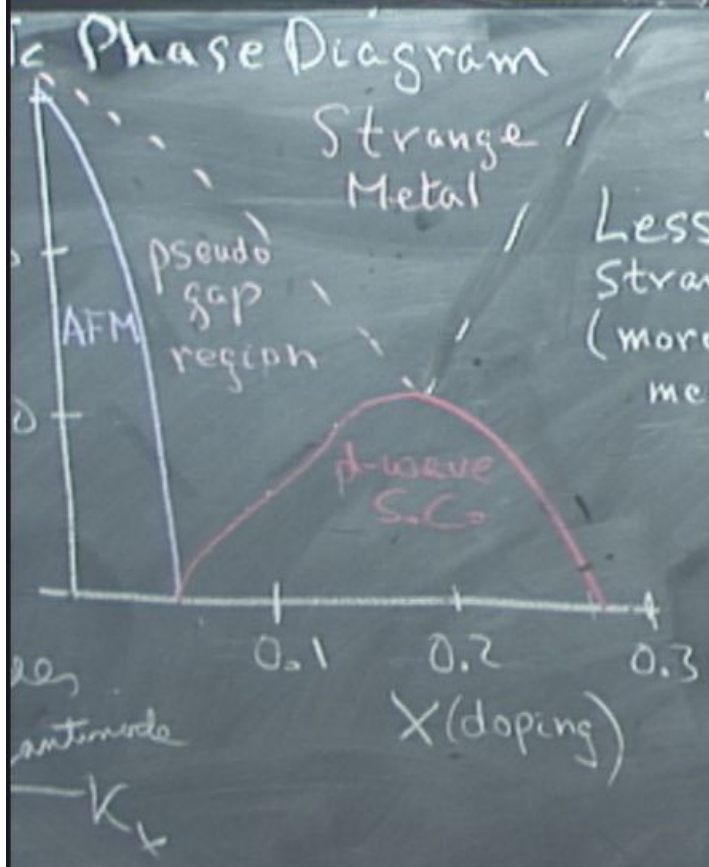 ic Phase Diagram
Strange
Metal
Less
Stran
(more
me
pseudo
gap
region
AFM
d-wave
S.C.
0.1 0.2 0.3
X(doping)
antinode
Kx